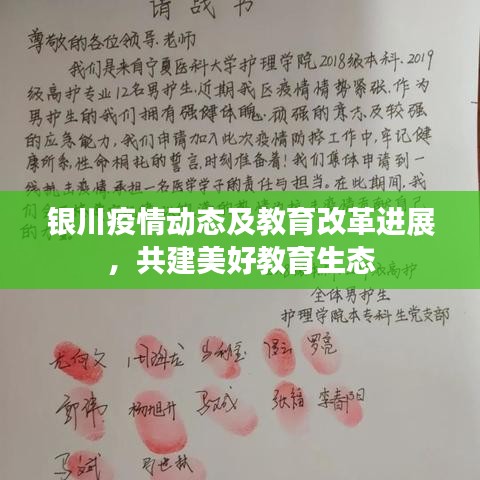 请战书
尊敬的各位领导、老师
我们是来自宁夏医科大学护理学院2018级本科、2019
级高护专业12名男护生,近期我区疫情情势紧张,作为
男护生的我们拥有强健体魄、顽强的意志及较强
的应急能力,我们申请加入此次疫情防控工作中,牢记健
康所系,性命相托的誓言,时刻准备着!我们集体申请到一
线抗击疫情,承担一名医学学子的责任与担当。在此期间,我
银川疫情动态及教育改革进展
,共建美好教育生态
全体男护生
护理学院本专科生党支部
罗亮
郭伟 杨旭升 马斌 张福 李春
马斌